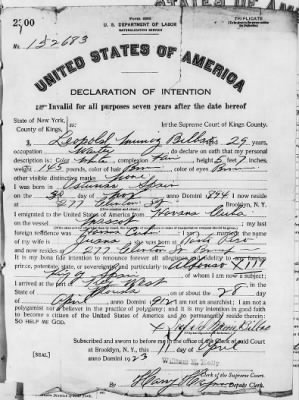 2500
Form 2202
TRIPLICATE
U. S. DEPARTMENT OF LABOR
NATURALIZATION SERVICE
No. 152683
UNITED STATES OF AMERICA
DECLARATION OF INTENTION
Invalid for all purposes seven years after the date hereof
State of New York,
County of Kings, ss: In the Supreme Court of Kings County.
I, Leopold Muniz, aged 29 years,
occupation, do declare on oath that my personal
description is: Color white, complexion Fair, height 5 feet 7 inches,
weight 143 pounds, color of hair, color of eyes
other visible distinctive marks none
I was born in Asturias Spain
on the day of, anno Domini 1894; I now reside
at 277 Clinton St, Brooklyn, N. Y.
I emigrated to the United States of America from Havana Cuba
on the vessel; my last
foreign residence was Havana Cuba; I am married; the name
of my wife is Juana; she was born at Porto Rico
and now resides at 277 Clinton St
It is my bona fide intention to renounce forever all allegiance and fidelity to any foreign
prince, potentate, state, or sovereignty, and particularly to Alfonso XIII
King of Spain, of whom I am now a subject;
I arrived at the port of Key West
State of Florida, on or about the 28 day
of April, anno Domini 1912; I am not an anarchist; I am not a
polygamist nor a believer in the practice of polygamy; and it is my intention in good faith
to become a citizen of the United States of America and to permanently reside therein:
SO HELP ME GOD.
Subscribed and sworn to before me in the office of the Clerk of said Court
at Brooklyn, N. Y., this 11 day of April
anno Domini 1923
[SEAL]
William E. Kelly
Clerk of the Supreme Court.
By Deputy Clerk.